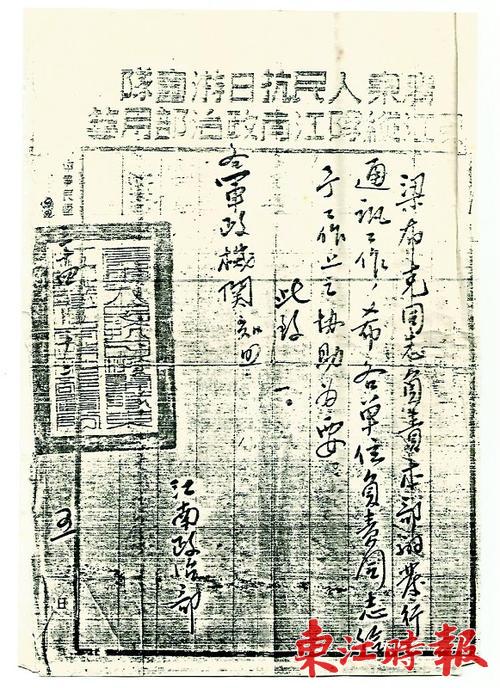 廣東人民抗日游擊隊
東江縱隊江南政治部用箋
梁布克同志負責本部發行
通訊工作,希各單位負責同志給
予工作上之協助為要
此致
各軍政機關
江南政治部
日
東江時報